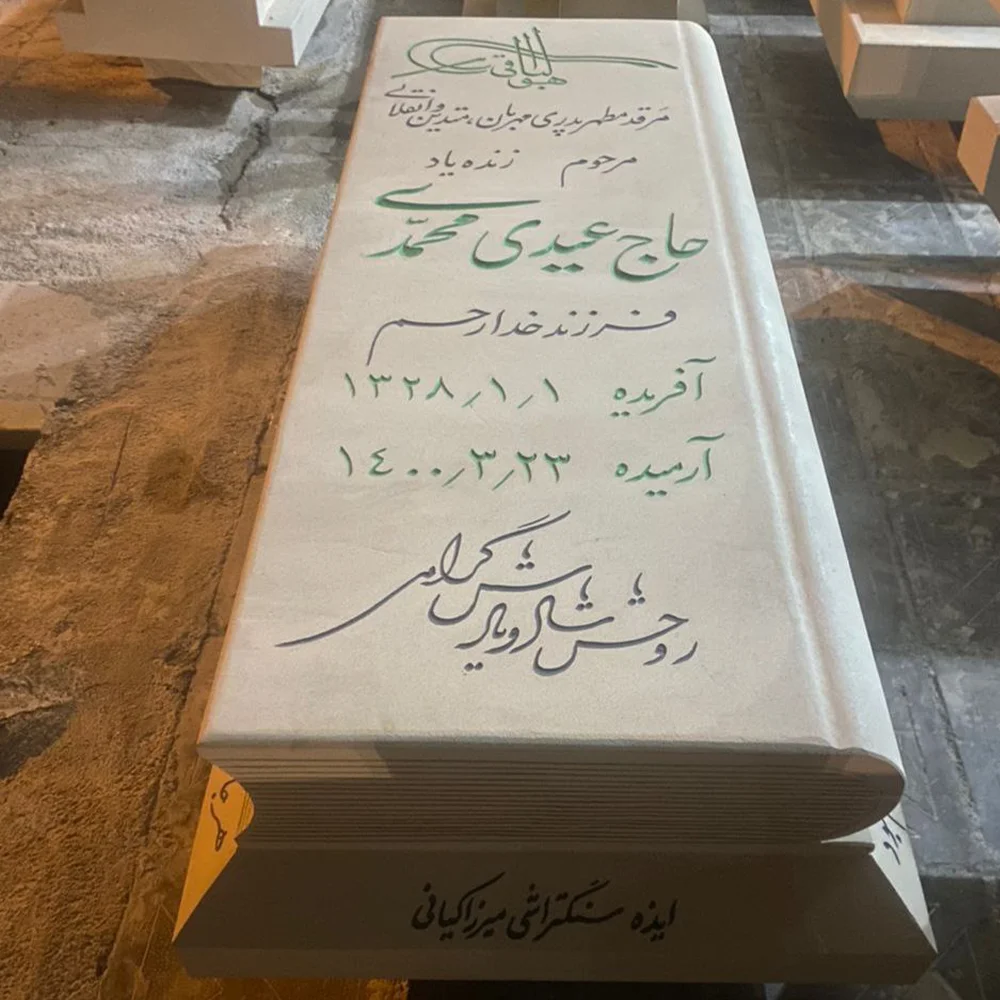 هو الباقی
مرقد مطهر پدری مهربان، متدین و انقلابی
مرحوم زنده یاد
حاج عیدی محمّدی
فرزند خدارحم
آفریده ۱۳۲۸٫۱٫۱
آرمیده ۱٤۰۰٫۳٫۲۳
روحش شاد و یادش گرامی
ایذه سنگتراشی میرزا کیانی